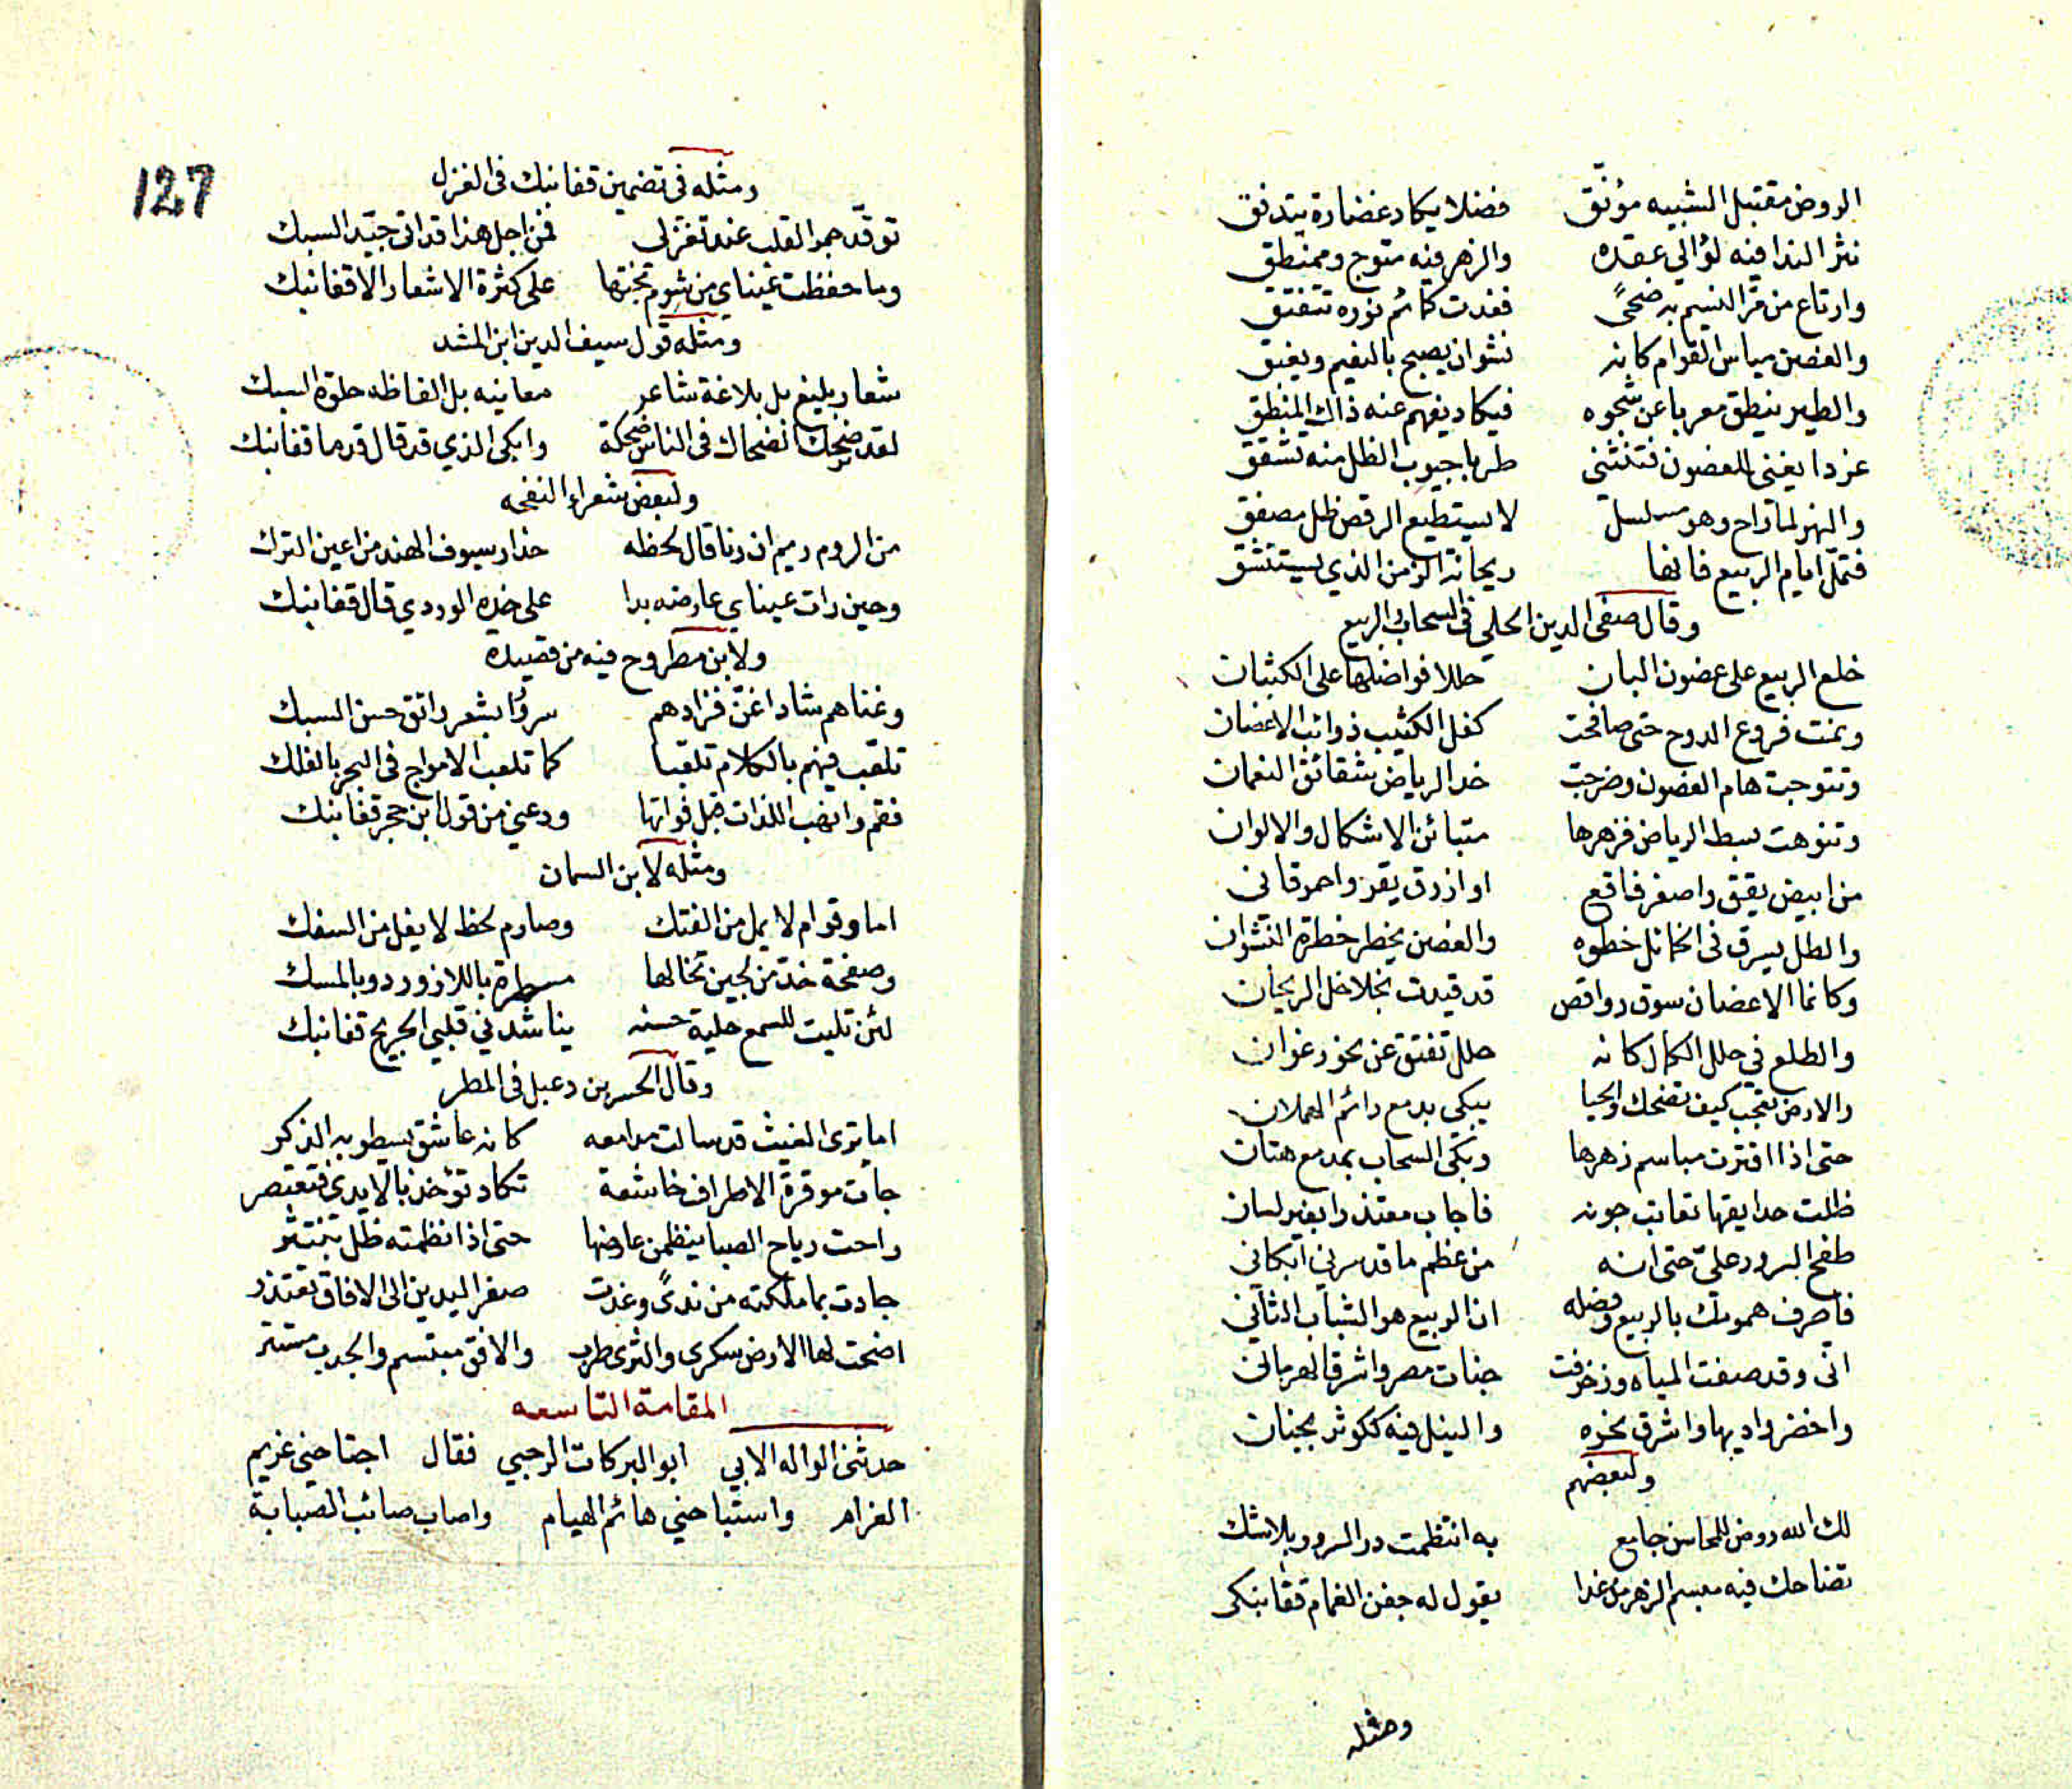 الروض مقتبل الشبيه مؤنق فضلا يكاد غضارة يتدفق
نثر الندا فيه لؤالي عقده والزهر فيه متوج وممنطق
وارتاع من مر النسيم به ضحًى فغدت كمائم نوره تتفتق
والغصن مياس القوام كانه نشوان يصبح بالنعيم ويغبق
والطير ينطق معربا عن شجوه فيكاد يفهم عنه ذاك المنطق
غردا يغنى للغصون فتنثنى طربا جيوب الظل منه تشقق
والنهر لما راح وهو مسلسل لا يستطيع الرقص ظل مصفق
فتملّ ايام الربيع فانها ريحانة الزمن الذي يستنشق
وقال صفى الدين الحلي فى السحاب والربيع
خلع الربيع على غصون البان حللا فواضلها على الكثبان
ونمت فروع الدوح حتى صافحت كفل الكثيب ذوائب الاغصان
وتتوجت هام الغصون وضرجت خد الرياض شقائق النعمان
وتنوهت بسط الرياض فزهرها متبائن الاشكال والالوان
من ابيض يقق واصفر فاقع او ازرق يقق واحمر قانى
والظل يسرق فى الخمائل خطوه والغصن يخطر خطرة النشوان
وكانما الاغصان سوق رواقص قد قيدت بخلاخل الريحان
والطلع فى حلل الكمال كانه حلل تفتق عن نحور غوان
والارض تعجب كيف تضحك والحيا يبكي بدمع دائم الهملان
حتى اذا افترت مباسم زهرها وبكى السحاب بمدمع هتان
ظلت حدايقها تعاتب جونه فاجاب معتذرا بغير لسان
طفح السرور علىّ حتى انه من عظم ما قد سرنى ابكانى
فاصرف همومك بالربيع وفضله ان الربيع هو الشباب الثانى
انى وقد صفت المياه وزخرفت جنات مصر واشرق الهرمان
واخضر واديها واشرق نحوه والنيل فيه ككوثر بجنان
ولبعضهم
لك الله روض للمحاسن جامع به انتظمت در السرور بلا شك
تضاحك فيه مبسم الزهر مذ غدا يقول له جفن الغمام قفا نبكى
ومثله
127
ومثله فى تضمين قفا نبك فى الغزل
توقّد جمر القلب عند تغزلى فمن اجل هذا قد اتى جيّد السبك
وما حفظت عيناى من شوم بختها على كثرة الاشعار الا قفا نبك
ومثله قول سيف الدين ابن المشد
شعار بليغ بل بلاغة شاعر معانيه بل الفاظه حلوة السبك
لقد ضحك الضحاك فى الناس ضحكة وابكى الذي قد قال قدما قفا نبك
ولبعض شعراء النفحه
من الروم ريم ان رنا قال لحظه حذار سيوف الهند من اعين الترك
وحين رات عيناي عارضه بدا على خده الوردي قال قفا نبك
ولابن مطروح فيه من قصيدة
وغناهم شاد اغنّ فزادهم سرورا بشعر رائق حسن السبك
تلعّب فيهم بالكلام تلعّبا كما تلعب الامواج فى البحر بالفلك
فقم وانهب اللذات قبل فواتها ودعني من قول ابن حجر قفا نبك
ومثله لابن السمان
اما وقوام لا يمل من الفتك وصارم لحظ لا يفل من السفك
وصفحة خد من لجين تخالها مسطرة باللازورد وبالمسك
لئن تليت للسمع حلية حسنه يناشدني قلبي الجريح قفا نبك
وقال الحسن بن دعبل فى المطر
اما ترى الغيث قد سالت مدامعه كانه عاشق يسطو به الذكر
جات موقرة الاطراف خاشعة تكاد تؤخذ بالايدى فتعتصر
راحت رياح الصبا ينظمن عارضها حتى اذا نظمته ظل ينتثر
جادت بما ملكته من ندًى وغدت صفر اليدين الى الافاق تعتذر
اضحت لها الارض سكرى والثرى طرب والافق مبتسم والجدب مستتر
المقامة التاسعه
حدثنى الواله الابي ابو البركات الرحبي فقال اجتاحنى غريم
الغرام واستباحني هائم الهيام واصاب صائب الصبابة